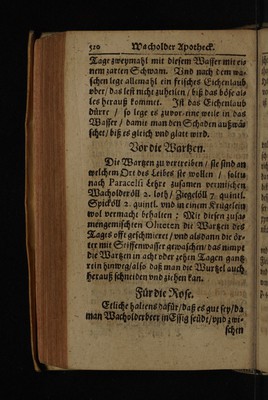 510 Wacholder Apotheck.
Tage zweymahl mit diesem Wasser mit ei-
nem zarten Schwam. Und nach dem wa-
schen lege allemahl ein frisches Eichenlaub
uber / das lest nicht zuheilen / biß das böse al-
les herauß kommet. Ist das Eichenlaub
dürre / so lege es zuvor eine weile in das
Wasser / damit man den Schaden außwä-
schet / biß es gleich und glatt wird.
Vor die Wartzen.
Die Wartzen zu vertreiben / sie sind an
welchem Ort des Leibes sie wollen / soltu
nach Paracelsi Lehre zusamen vermischen
Wacholderöll 2. loth / Ziegelöll 7. quintl.
Spicköll 2. quintl. und in einem Krügelein
wol vermacht behalten ; Mit diesen zusa-
mengemischten Oliteten die Wartzen des
Tages offt geschmieret / und alsdann die ör-
ter mit Seiffenwasser gewaschen / das nimpt
die Wartzen in acht oder zehen Tagen gantz
rein hinweg / also daß man die Wurtzel auch
herauß schneiden und ziehen kan.
Für die Rose.
Etliche haltens dafür / daß es gut sey / da
man Wacholderbeer in Essig seudt / und zwi-
schen